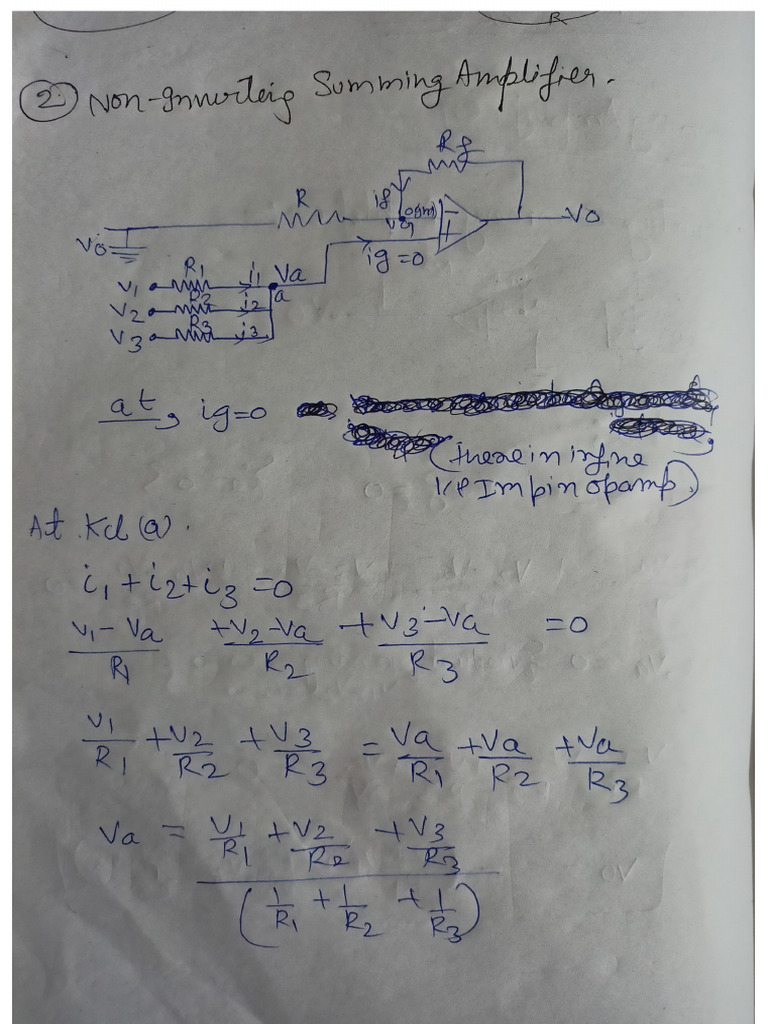 R
2. Non-Inverting Summing Amplifier.
Rf
R
if
Vo
ig=0
V1 R1 i1 Va
a
V2 R2 i2
V3 R3 i3
at, ig=0
(there in infine
I/P Imp in opamp)
At Kcl (a).
i1 + i2 + i3 = 0
V1 - Va / R1 + V2 - Va / R2 + V3 - Va / R3 = 0
V1/R1 + V2/R2 + V3/R3 = Va/R1 + Va/R2 + Va/R3
Va = V1/R1 + V2/R2 + V3/R3
(1/R1 + 1/R2 + 1/R3)